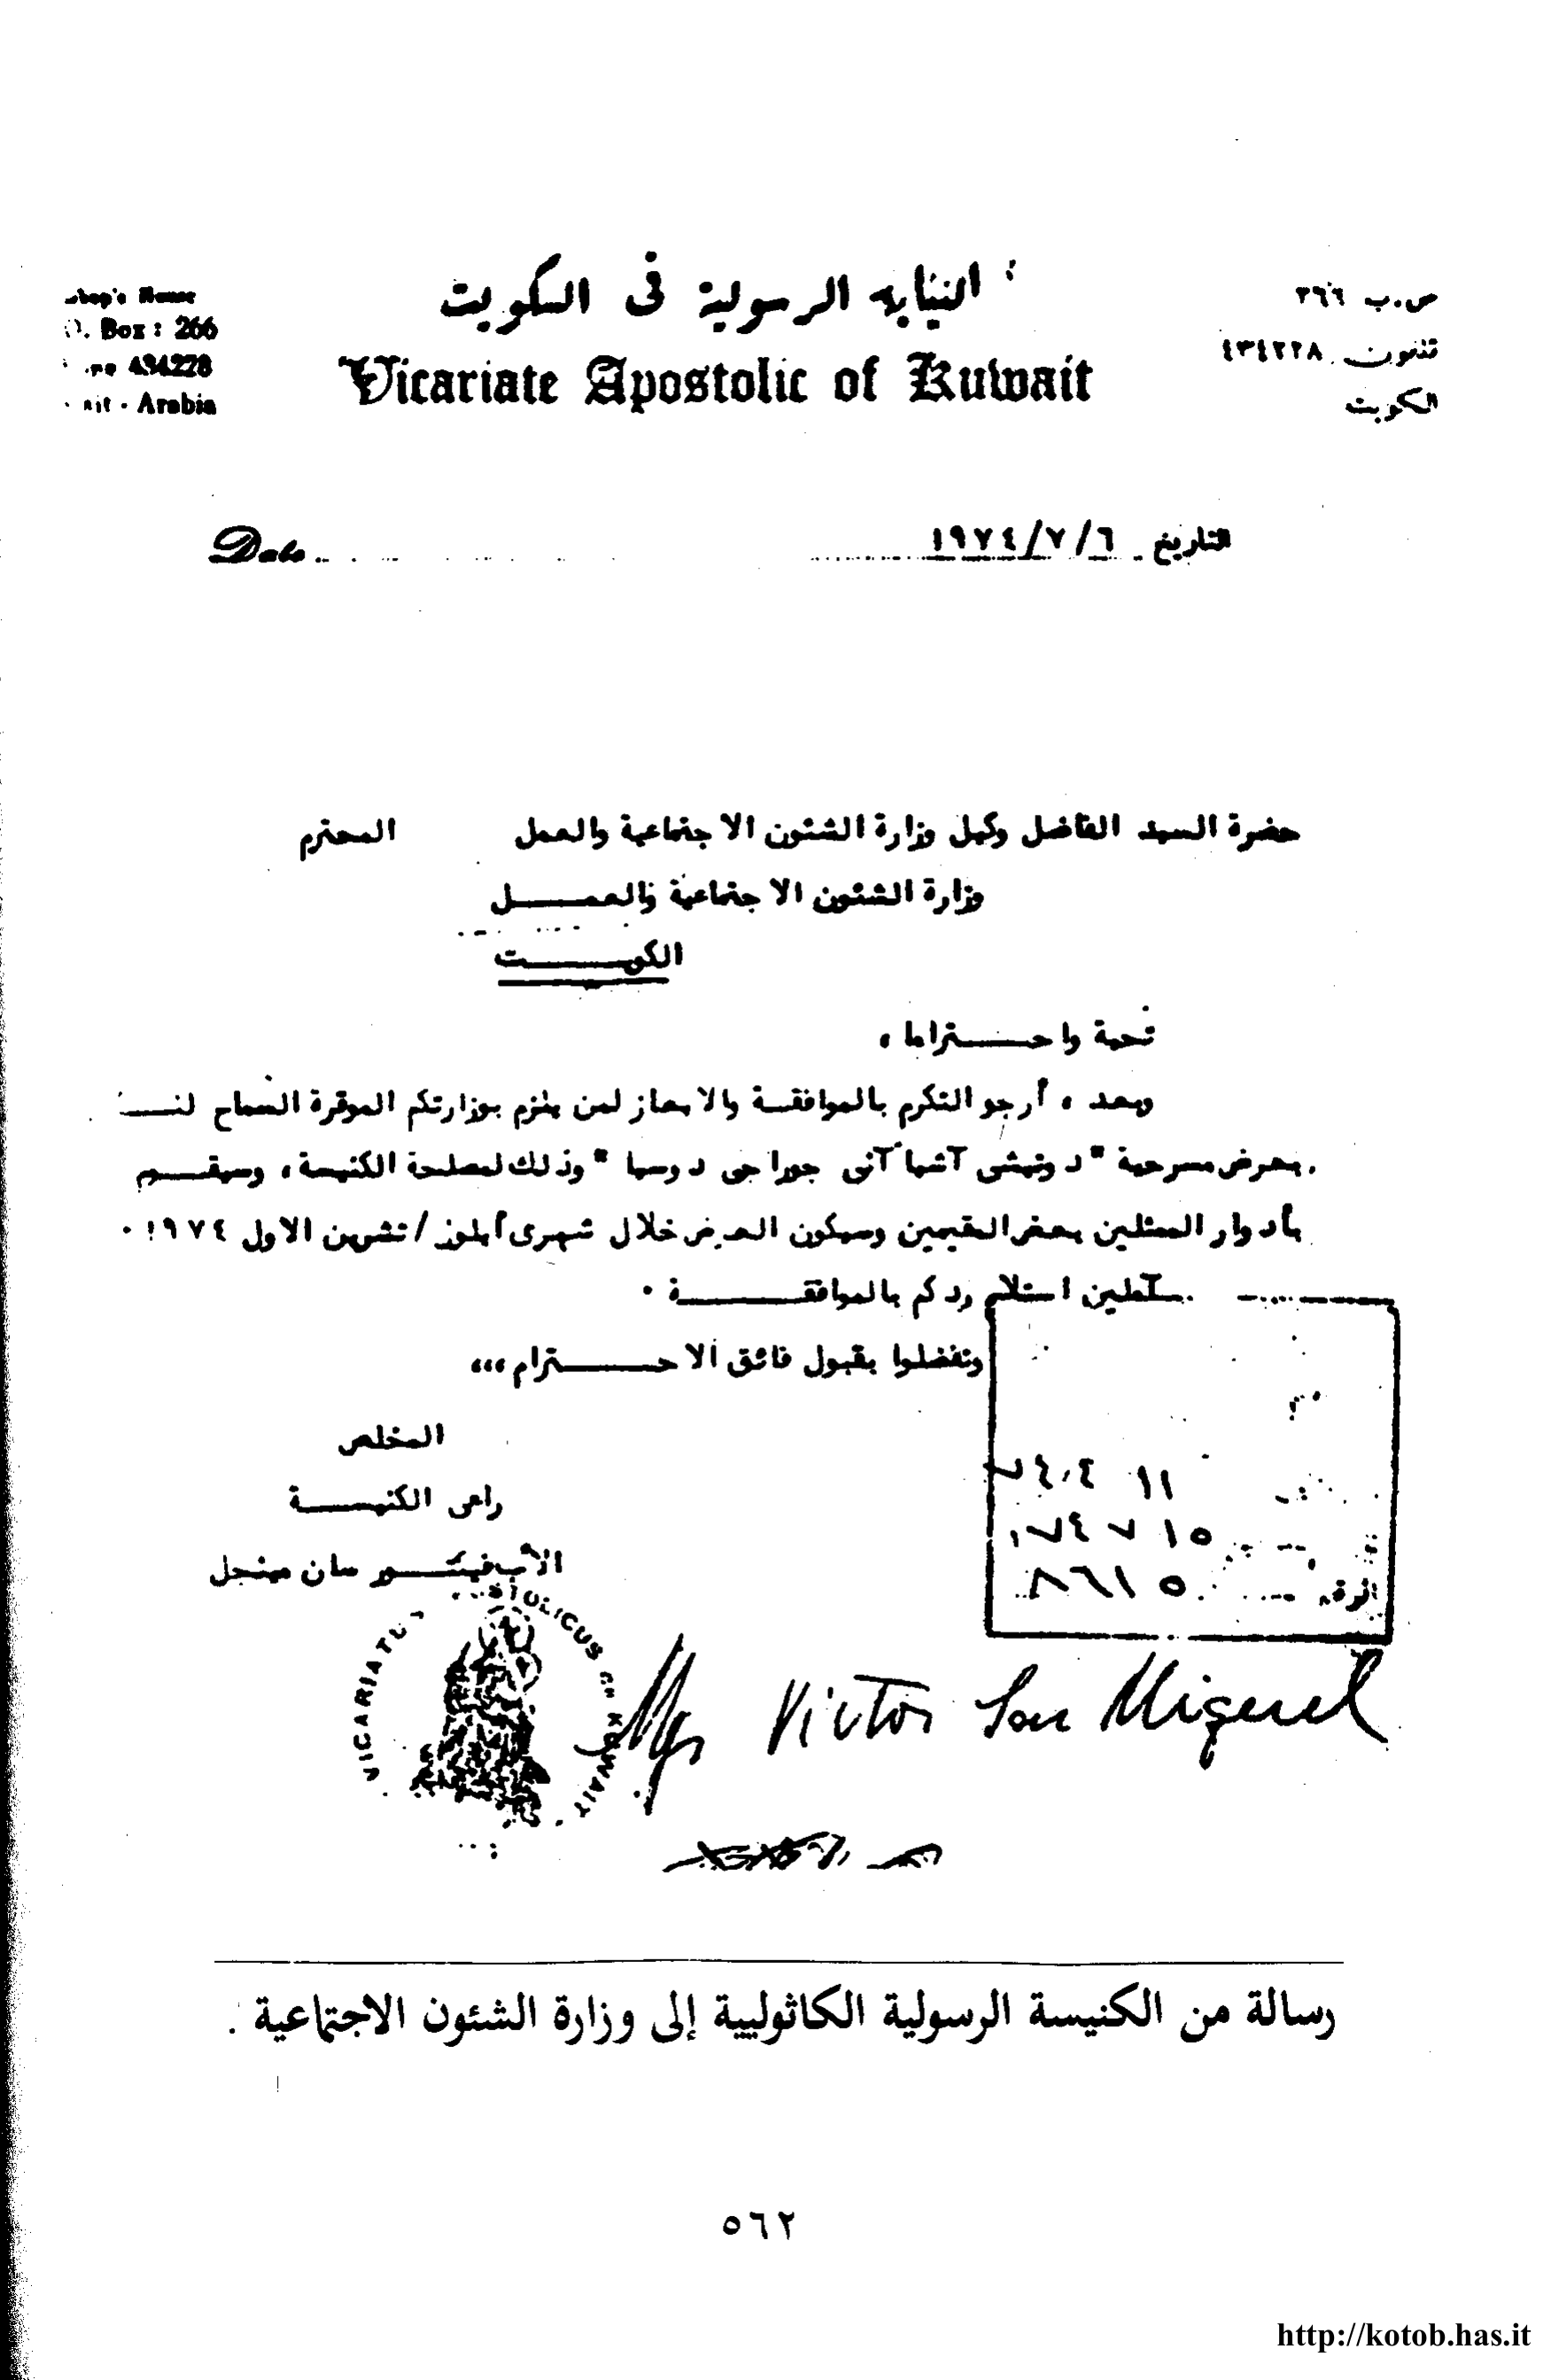 النيابه الرسولية فى الكويت
Vicariate Apostolic of Kuwait
House
Box : 266
434228
Arabia
ص.ب ٢٦٦
تلفون ٤٣٤٢٢٨
الكويت
Date
التاريخ ١٩٧٤/٧/٦
حضرة السيد الفاضل وكيل وزارة الشئون الاجتماعية والعمل المحترم
وزارة الشئون الاجتماعية والعمل
الكويت
تحية واحتراما ،
وبعد ، أرجو التكرم بالموافقة والايعاز لمن يلزم بوزارتكم الموقرة السماح لنا
بعرض مسرحية " ونيشى آشيا آنى جورا جى دوسيا " وذلك لمصلحة الكنيسة ، وسيقوم
بأدوار الممثلين بعض المقيمين وسيكون العرض خلال شهرى أيلول / تشرين الاول ١٩٧٤ .
آملين استلام ردكم بالموافقة .
وتفضلوا بقبول فائق الاحترام ،،،
المخلص
راعى الكنيسة
الأب فيكتور سان ميجل
١٥ ٧ ٧٤
الرقم ٥١٦٨
VICARIATUS APOSTOLICUS DE KUWAIT
Victor San Miguel
رسالة من الكنيسة الرسولية الكاثوليية إلى وزارة الشئون الاجتماعية .
٥٦٢
http://kotob.has.it